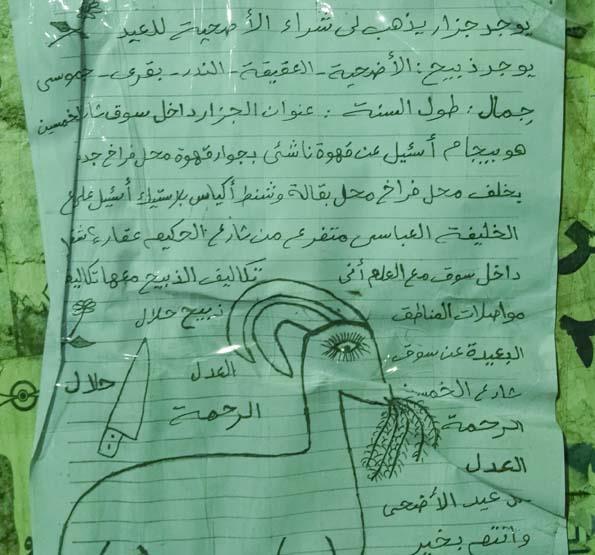 يوجد جزار يذهب لى شراء الأضحية للعيد
يوجد ذبيح : الأضحية - العقيقة - الندر - بقرى - جموسى
جمال : طول السنة : عنوان الجزار داخل سوق شارع الخمسين
هو بيجام أسئيل عن قهوة ناشئ بجوار قهوة محل فراخ
بخلف محل فراخ محل بقالة وشنط أكياس بلاستيك أسئيل
الخليفة العباسى متفرع من شارع الحكيم عقار
داخل سوق مع العلم أنى تكاليف الذبيح معها تكاليف
مواصلات المناطق ذبيح حلال
البعيدة عن سوق العدل حلال
شارع الخمسين الرحمة
الرحمة
العدل
عيد الأضحى
وأنتم بخير